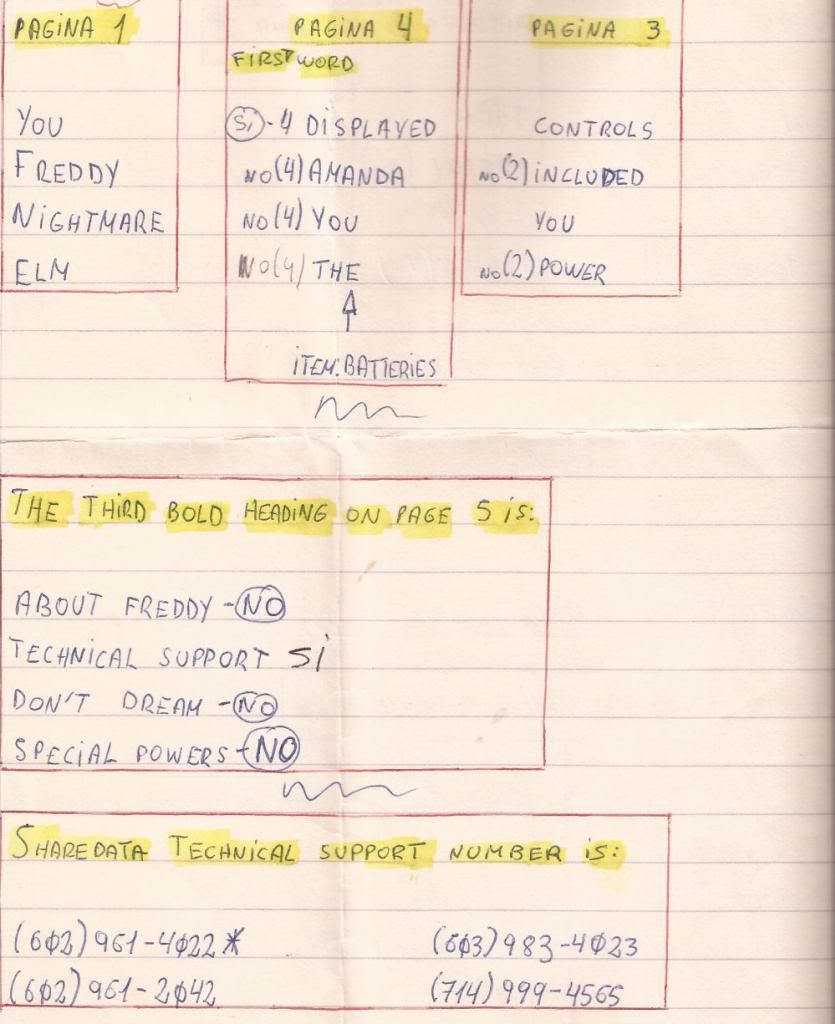 PAGINA 1
YOU
FREDDY
NIGHTMARE
ELM
PAGINA 4
FIRST WORD
Si - 4 DISPLAYED
NO (4) AMANDA
NO (4) YOU
NO (4) THE
ITEM. BATTERIES
PAGINA 3
CONTROLS
NO (2) INCLUDED
YOU
NO (2) POWER
THE THIRD BOLD HEADING ON PAGE 5 iS:
ABOUT FREDDY - NO
TECHNICAL SUPPORT Si
DON'T DREAM - NO
SPECIAL POWERS - NO
SHAREDATA TECHNICAL SUPPORT NUMBER iS:
(602) 961-4022 * (603) 983-4023
(602) 961-2042 (714) 999-4565